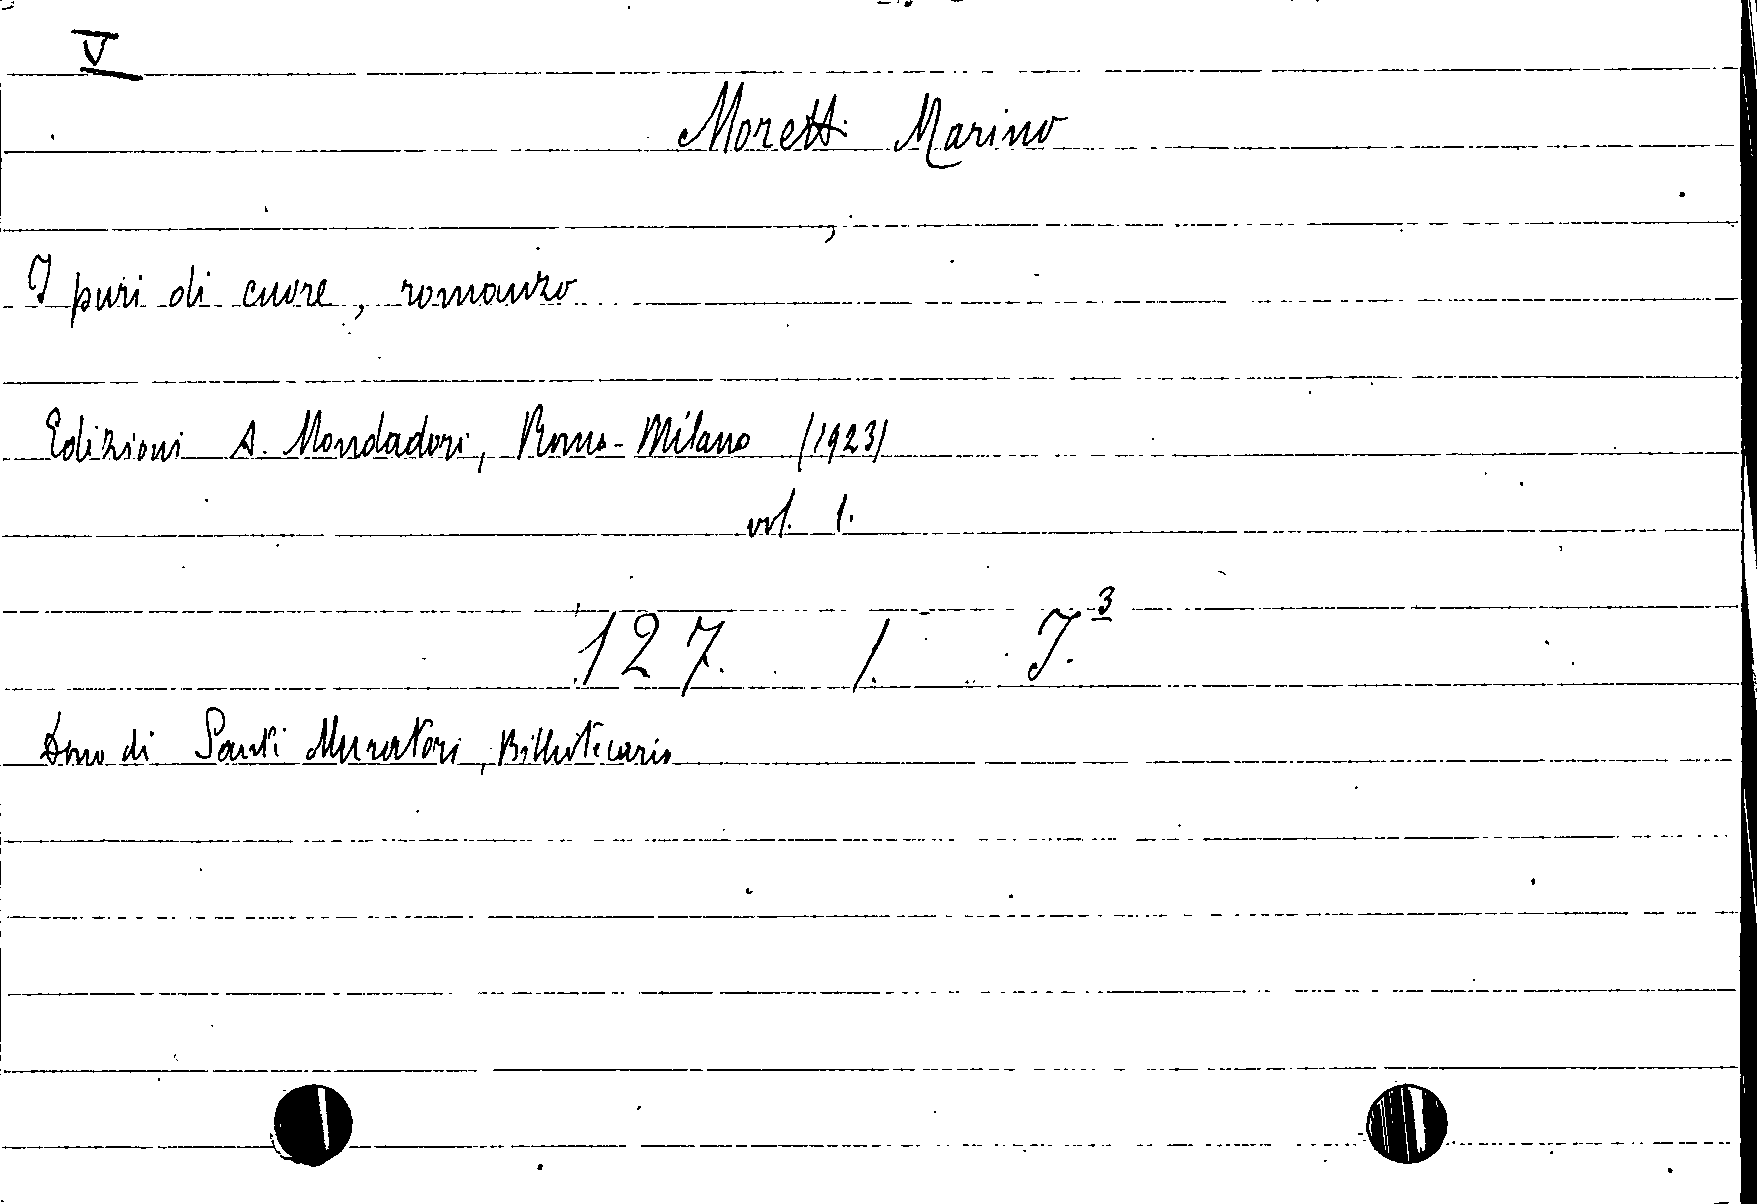 V
Moretti Marino
I puri di cuore, romanzo
Edizioni A. Mondadori, Roma-Milano (1923)
vol. 1.
127. 1. J.3
Dono di Santi Muratori, Bibliotecario